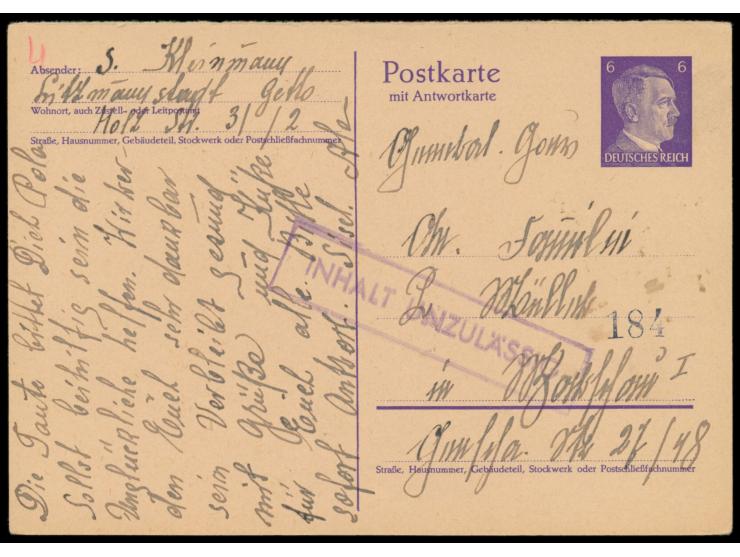 4
Absender: S. Kleinmann
Litzmannstadt Getto
Wohnort, auch Zustell- oder Leitpostamt
Holz Str. 31/2
Straße, Hausnummer, Gebäudeteil, Stockwerk oder Postschließfachnummer
Die Tante bittet Dich Pola
sollst behilflig sein die
Unglückliche helfen. Wir wer-
den Euch sehr dankbar
sein Verbleibt gesund
mit Grüße und Küße
für Euch alle. Bitte
sofort Antwort.
Postkarte
mit Antwortkarte
6 6
DEUTSCHES REICH
General. Gouv
An. Familie
Müller
184
in Warschau I
Str 27/48
Straße, Hausnummer, Gebäudeteil, Stockwerk oder Postschließfachnummer
INHALT UNZULÄSSIG